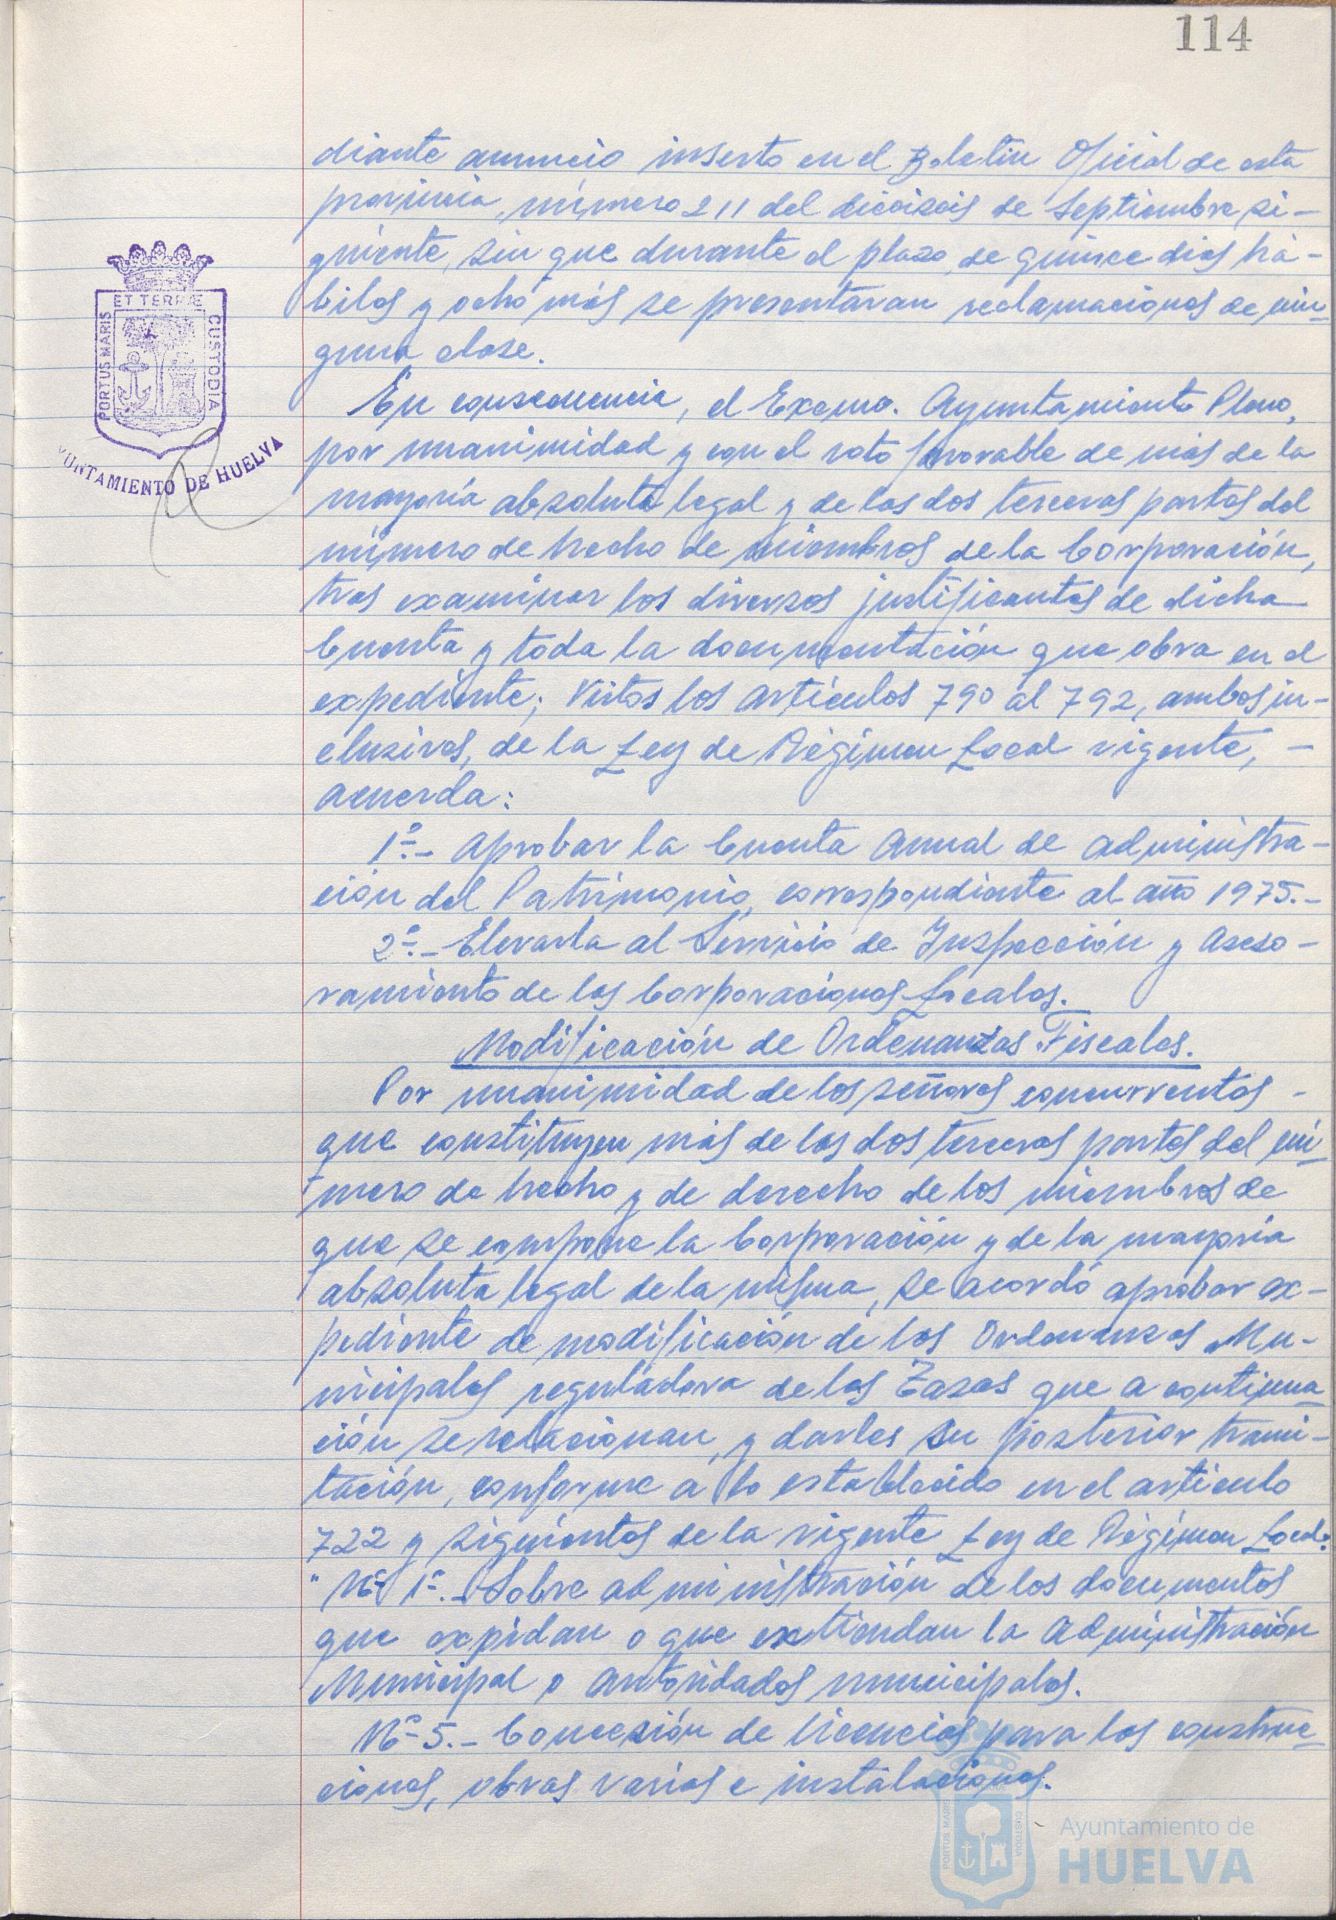 114
diante anuncio inserto en el Boletín Oficial de esta
provincia, número 211 del dieciseis de Septiembre si-
guiente, sin que durante el plazo de quince dias há-
biles y ocho más se presentaran reclamaciones de nin-
guna clase.
En consecuencia, el Excmo. Ayuntamiento Pleno,
por unanimidad y con el voto favorable de más de la
mayoría absoluta legal y de las dos terceras partes del
número de hecho de miembros de la Corporación,
tras examinar los diversos justificantes de dicha
Cuenta y toda la documentación que obra en el
expediente; Vistos los artículos 790 al 792, ambos in-
clusives, de la Ley de Régimen Local vigente, -
acuerda:
1º.- Aprobar la Cuenta Anual de Administra-
ción del Patrimonio, correspondiente al año 1975.-
2º.- Elevarla al Servicio de Inspección y Aseso-
ramiento de las Corporaciones Locales.
Modificación de Ordenanzas Fiscales.
Por unanimidad de los señores concurrentes -
que constituyen más de las dos terceras partes del nú-
mero de hecho y de derecho de los miembros de
que se compone la Corporación y de la mayoría
absoluta legal de la misma, se acordó aprobar ex-
pediente de modificación de las Ordenanzas Mu-
nicipales reguladora de las Tasas que a continua-
ción se relacionan, y darles su posterior trami-
tación, conforme a lo establecido en el artículo
722 y siguientes de la vigente Ley de Régimen Local:
" Nº 1º.- Sobre administración de los documentos
que expidan o que extiendan la Administración
Municipal o Autoridades municipales.
Nº 5.- Concesión de licencias para las construc-
ciones, obras varias e instalaciones.
ET TERRÆ
PORTUS MARIS
CUSTODIA
YUNTAMIENTO DE HUELVA
PORTUS MARIS
CUSTODIA
Ayuntamiento de
HUELVA